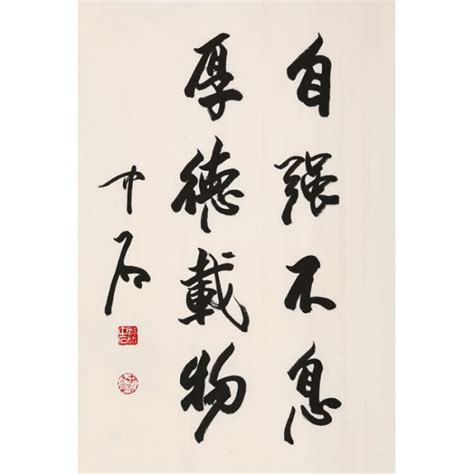 自强不息
厚德載物
中石